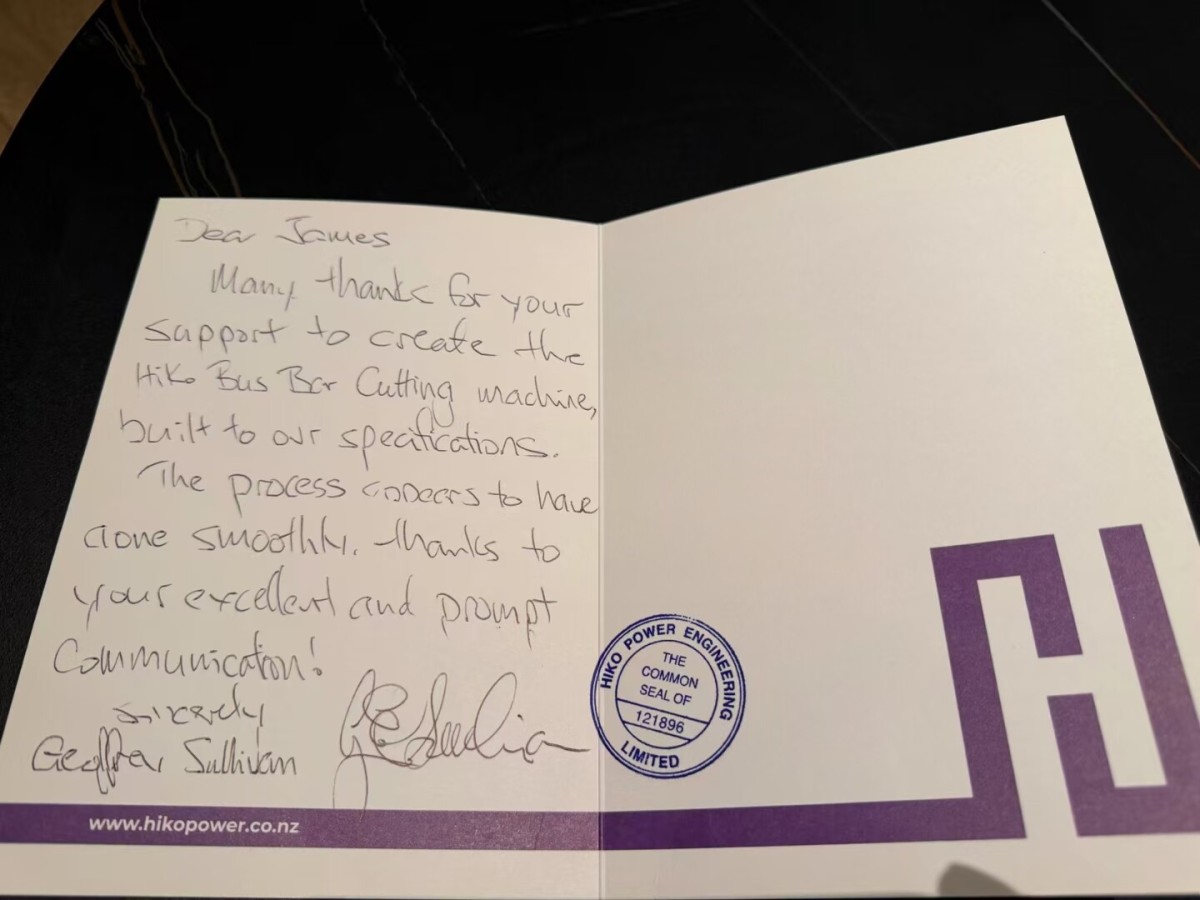 Dear James
Many thanks for your
support to create the
Hiko Bus Bar Cutting machine,
built to our specifications.
The process appears to have
gone smoothly, thanks to
your excellent and prompt
Communication!
Sincerely
Geoffrey Sullivan
www.hikopower.co.nz
HIKO POWER ENGINEERING
THE
COMMON
SEAL OF
121896
LIMITED